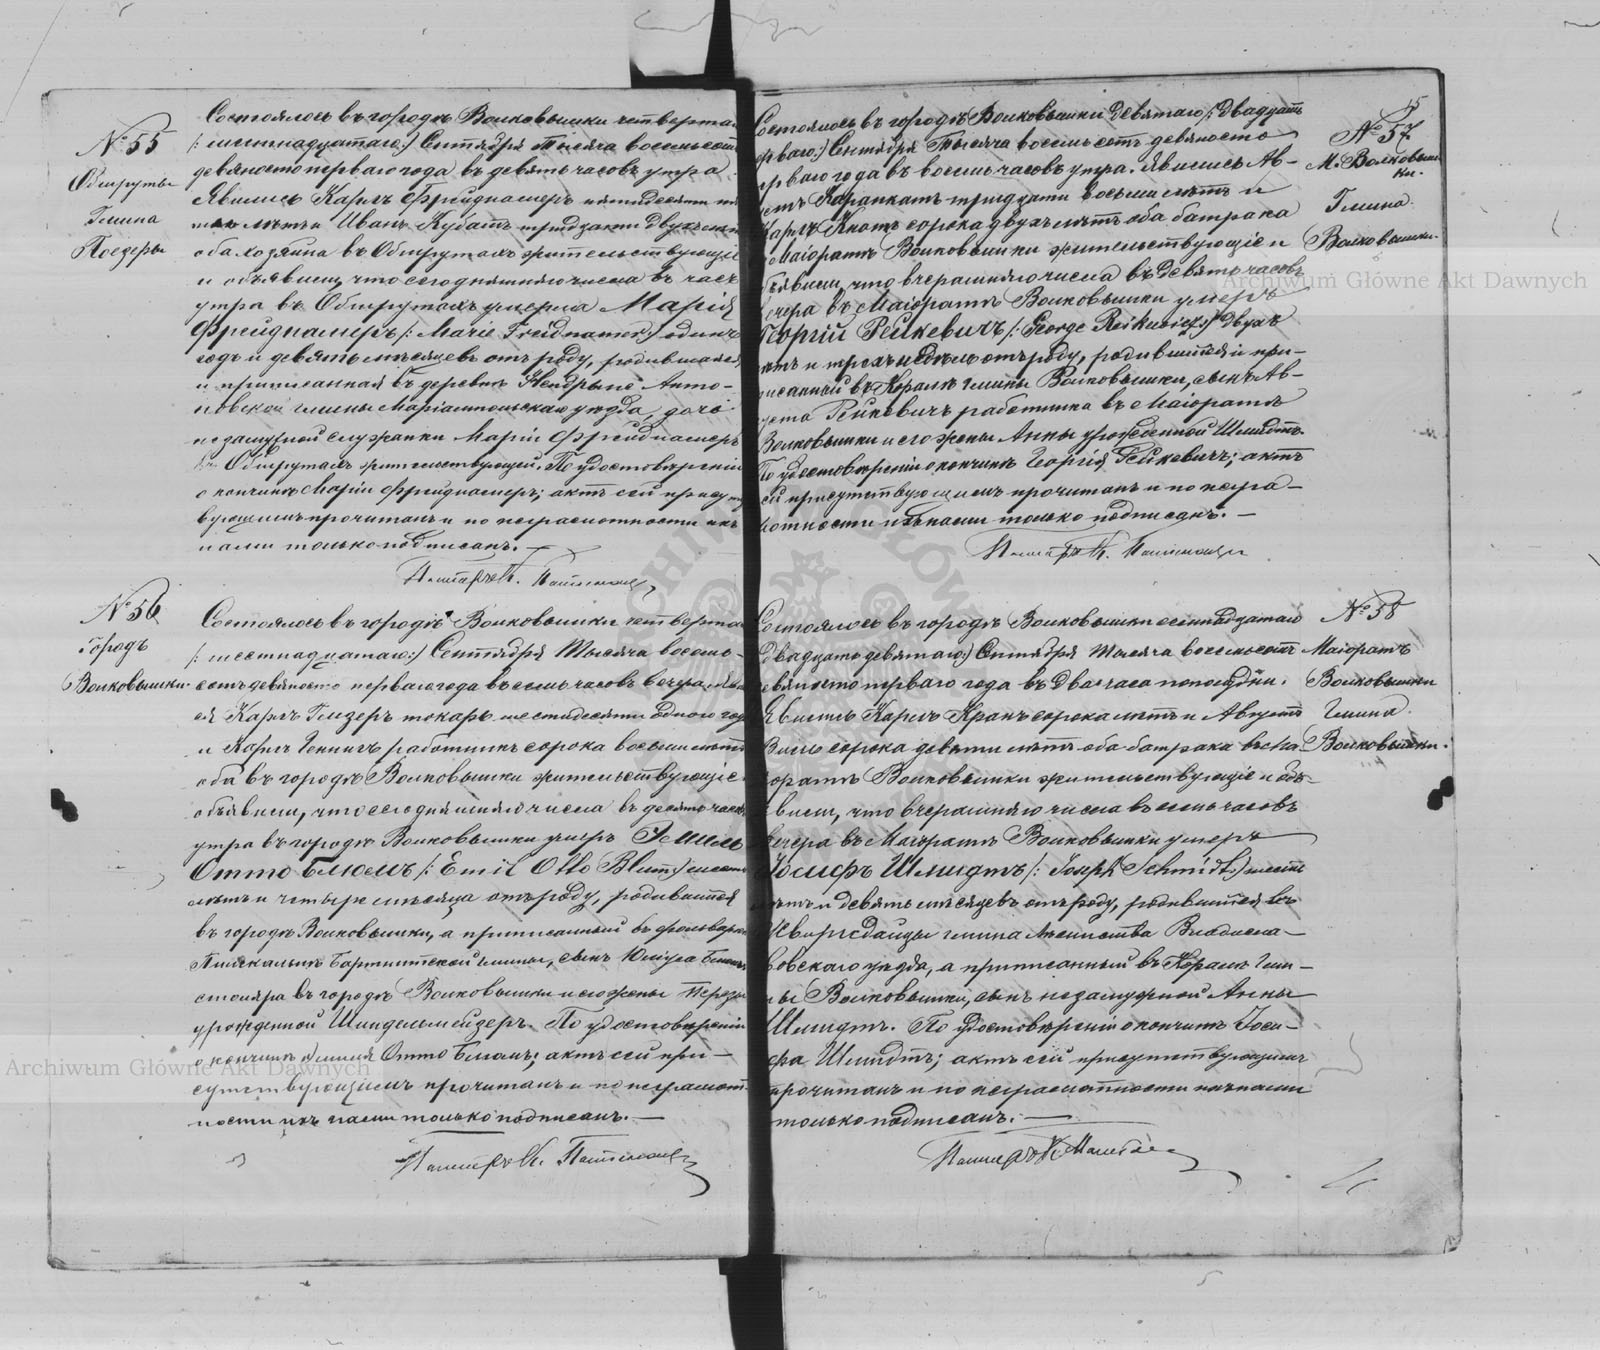 № 55
Обшруты
Гмина
Поезеры
Состоялось въ городѣ Волковышки четвертаго
/: шестнадцатаго:/ Сентября Тысяча восемьсотъ
девяносто перваго года въ девять часовъ утра
Явились Карлъ Фрейднамеръ пятидесяти
лѣтъ и Иванъ Кубатъ тридцати двухъ лѣтъ
оба хозяина въ Обшрутахъ жительствующіе
и объявили, что сегодняшняго числа въ часъ
утра въ Обшрутахъ умерла Марія
Фрейднамеръ /: Marie Freidnamer:/ одинъ
годъ и девять мѣсяцевъ отъ роду, родившаяся
и приписанная въ деревнѣ Антo-
новской гмины Маріампольскаго уѣзда, дочь
незамужной служанки Маріи Фрейднамеръ
въ Обшрутахъ жительствующей. По удостовѣреніи
о кончинѣ Маріи Фрейднамеръ; актъ сей присутст
вующимъ прочитанъ и по неграмотности ихъ
нами только подписанъ. —
Пасторъ
№ 56
Городъ
Волковышки
Состоялось въ городѣ Волковышки четвертаго
/: шестнадцатаго:/ Сентября Тысяча восемь-
сотъ девяносто перваго года въ семь часовъ вечера. Явили
ся Карлъ Глизеръ токарь шестидесяти одного года
и Карлъ Геннигъ работникъ сорока восьми лѣтъ
оба въ городѣ Волковышки жительствующіе
объявили, что сегодняшняго числа въ десять часовъ
утра въ городѣ Волковышки умеръ Эмиль
Отто Блюмъ /: Emil Otto Blum:/ шесть
лѣтъ и четыре мѣсяца отъ роду, родившійся
въ городѣ Волковышки, а приписанный въ фольваркѣ
Бартнитской гмины, сынъ Юлiуса Блюмъ
столяра въ городѣ Волковышки и его жены Терезы
урожденной Шиндельмейзеръ. По удостовѣреніи
о кончинѣ Эмиля Отто Блюмъ; актъ сей при-
сутствующимъ прочитанъ и по неграмот-
ности ихъ нами только подписанъ. —
Пасторъ
№ 57
М. Волковыш
ки.
Гмина
Волковышки.
Состоялось въ городѣ Волковышки девятаго /: двадцать
перваго:/ Сентября Тысяча восемьсотъ девяносто
перваго года въ восемь часовъ утра. Явились Ав-
густъ Карапкатъ тридцати восьми лѣтъ и
Карлъ Кнотъ сорока двухъ лѣтъ оба батрака
въ Маіоратѣ Волковышки жительствующіе и
объявили, что вчерашняго числа въ девять часовъ
вечера въ Маіоратѣ Волковышки умеръ
Георгій Рейкевичъ /: George Reikewicz:/ двухъ
лѣтъ и трехъ недѣль отъ роду, родившійся и при-
писанный въ Коралѣ гмины Волковышки, сынъ Ав-
густа Рейкевичъ работника въ Маіоратѣ
Волковышки и его жены Анны урожденной Шмидтъ.
По удостовѣреніи о кончинѣ Георгія Рейкевичъ; актъ
сей присутствующимъ прочитанъ и по негра-
мотности ихъ нами только подписанъ. —
Пасторъ
№ 58
Маіоратъ
Волковышки
Гмина
Волковышки.
Состоялось въ городѣ Волковышки семнадцатаго
/: двадцать девятаго:/ Сентября Тысяча восемьсотъ
девяносто перваго года въ два часа пополудни.
Явились Карлъ Кранъ сорока лѣтъ и Августъ
сорока девяти лѣтъ оба батрака въ Ма-
іоратѣ Волковышки жительствующіе и объ-
явили, что вчерашняго числа въ семь часовъ
вечера въ Маіоратѣ Волковышки умеръ
Іосифъ Шмидтъ /: Joseph Schmidt:/ шесть
лѣтъ и девять мѣсяцевъ отъ роду, родившійся въ
гмина Владисла-
вовскаго уѣзда, а приписанный въ Коралѣ гми-
ны Волковышки, сынъ незамужной Анны
Шмидтъ. По удостовѣреніи о кончинѣ Іоси-
фа Шмидтъ; актъ сей присутствующимъ
прочитанъ и по неграмотности ихъ нами
только подписанъ. —
Пасторъ
Archiwum Główne Akt Dawnych
Archiwum Główne Akt Dawnych